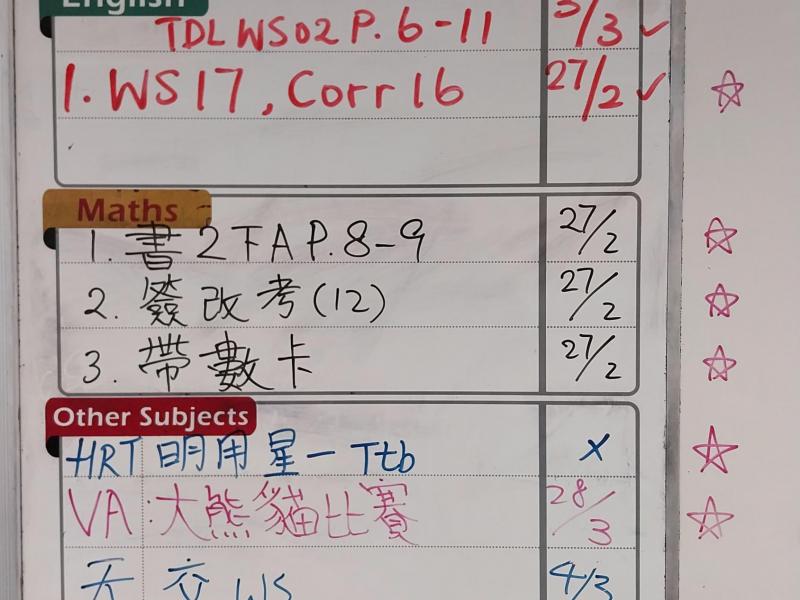 English
TDL WS02 P. 6-11 3/3 ✓
1. WS 17, Corr 16 27/2 ✓
Maths
1. 書2下A P.8-9 27/2
2. 簽改考(12) 27/2
3. 帶數卡 27/2
Other Subjects
HRT 明用星一 Ttb x
VA: 大熊貓比賽 28/3
交 WS 4/3